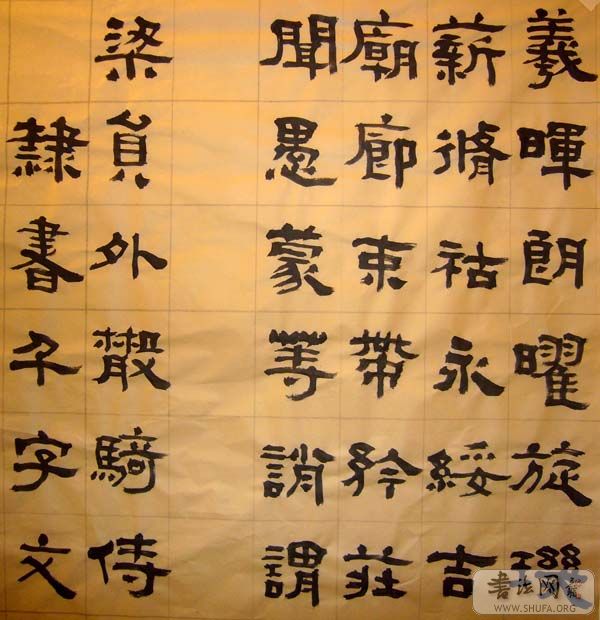 羲暉朗曜旋璣
薪脩祜永綏吉
廟廊束帶矜莊
聞愚蒙等誚謂
梁員外散騎侍
隸書千字文
书法网
WWW.SHUFA.ORG